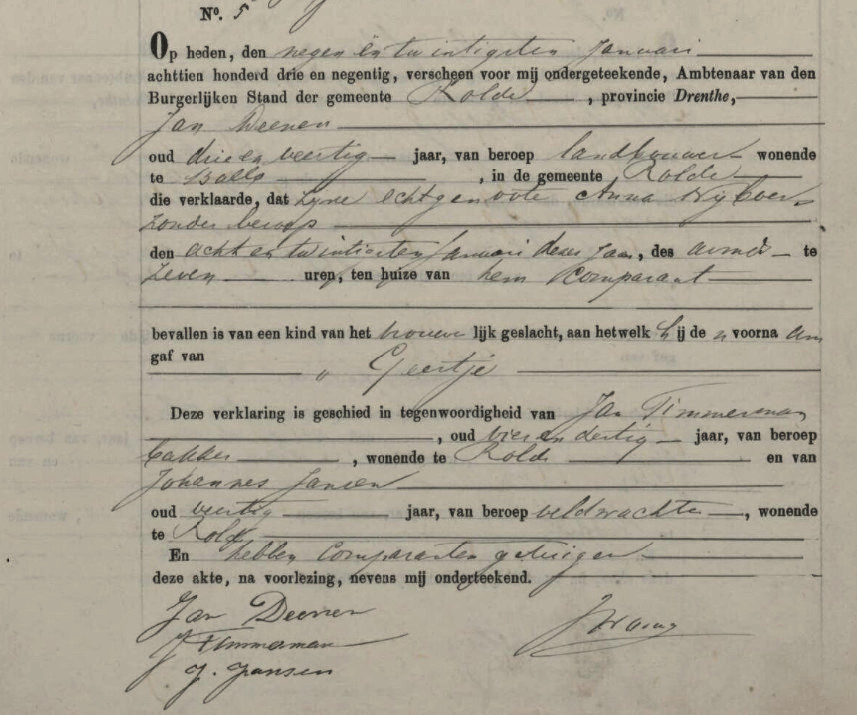 N°. 5
Op heden, den negen en twintigsten Januari
achttien honderd drie en negentig, verscheen voor mij ondergeteekende, Ambtenaar van den
Burgerlijken Stand der gemeente Rolde, provincie Drenthe,
Jan Deenen
oud drie en veertig jaar, van beroep landbouwer wonende
te Ballo, in de gemeente Rolde
die verklaarde, dat zyne echtgenoote Anna Nijboer
zonder beroep
den acht en twintigsten Januari dezes jaars, des avonds te
zeven uren, ten huize van hem Comparant
bevallen is van een kind van het vrouwelijk geslacht, aan hetwelk hij de n voornaam
gaf van
" Geertje
Deze verklaring is geschied in tegenwoordigheid van Jan Timmerman
, oud vier en dertig jaar, van beroep
bakker, wonende te Rolde en van
Johannes Jansen
oud veertig jaar, van beroep veldwachter, wonende
te Rolde
En hebben Comparanten getuigen
deze akte, na voorlezing, nevens mij onderteekend.
Jan Deenen
J Timmerman
J. Jansen